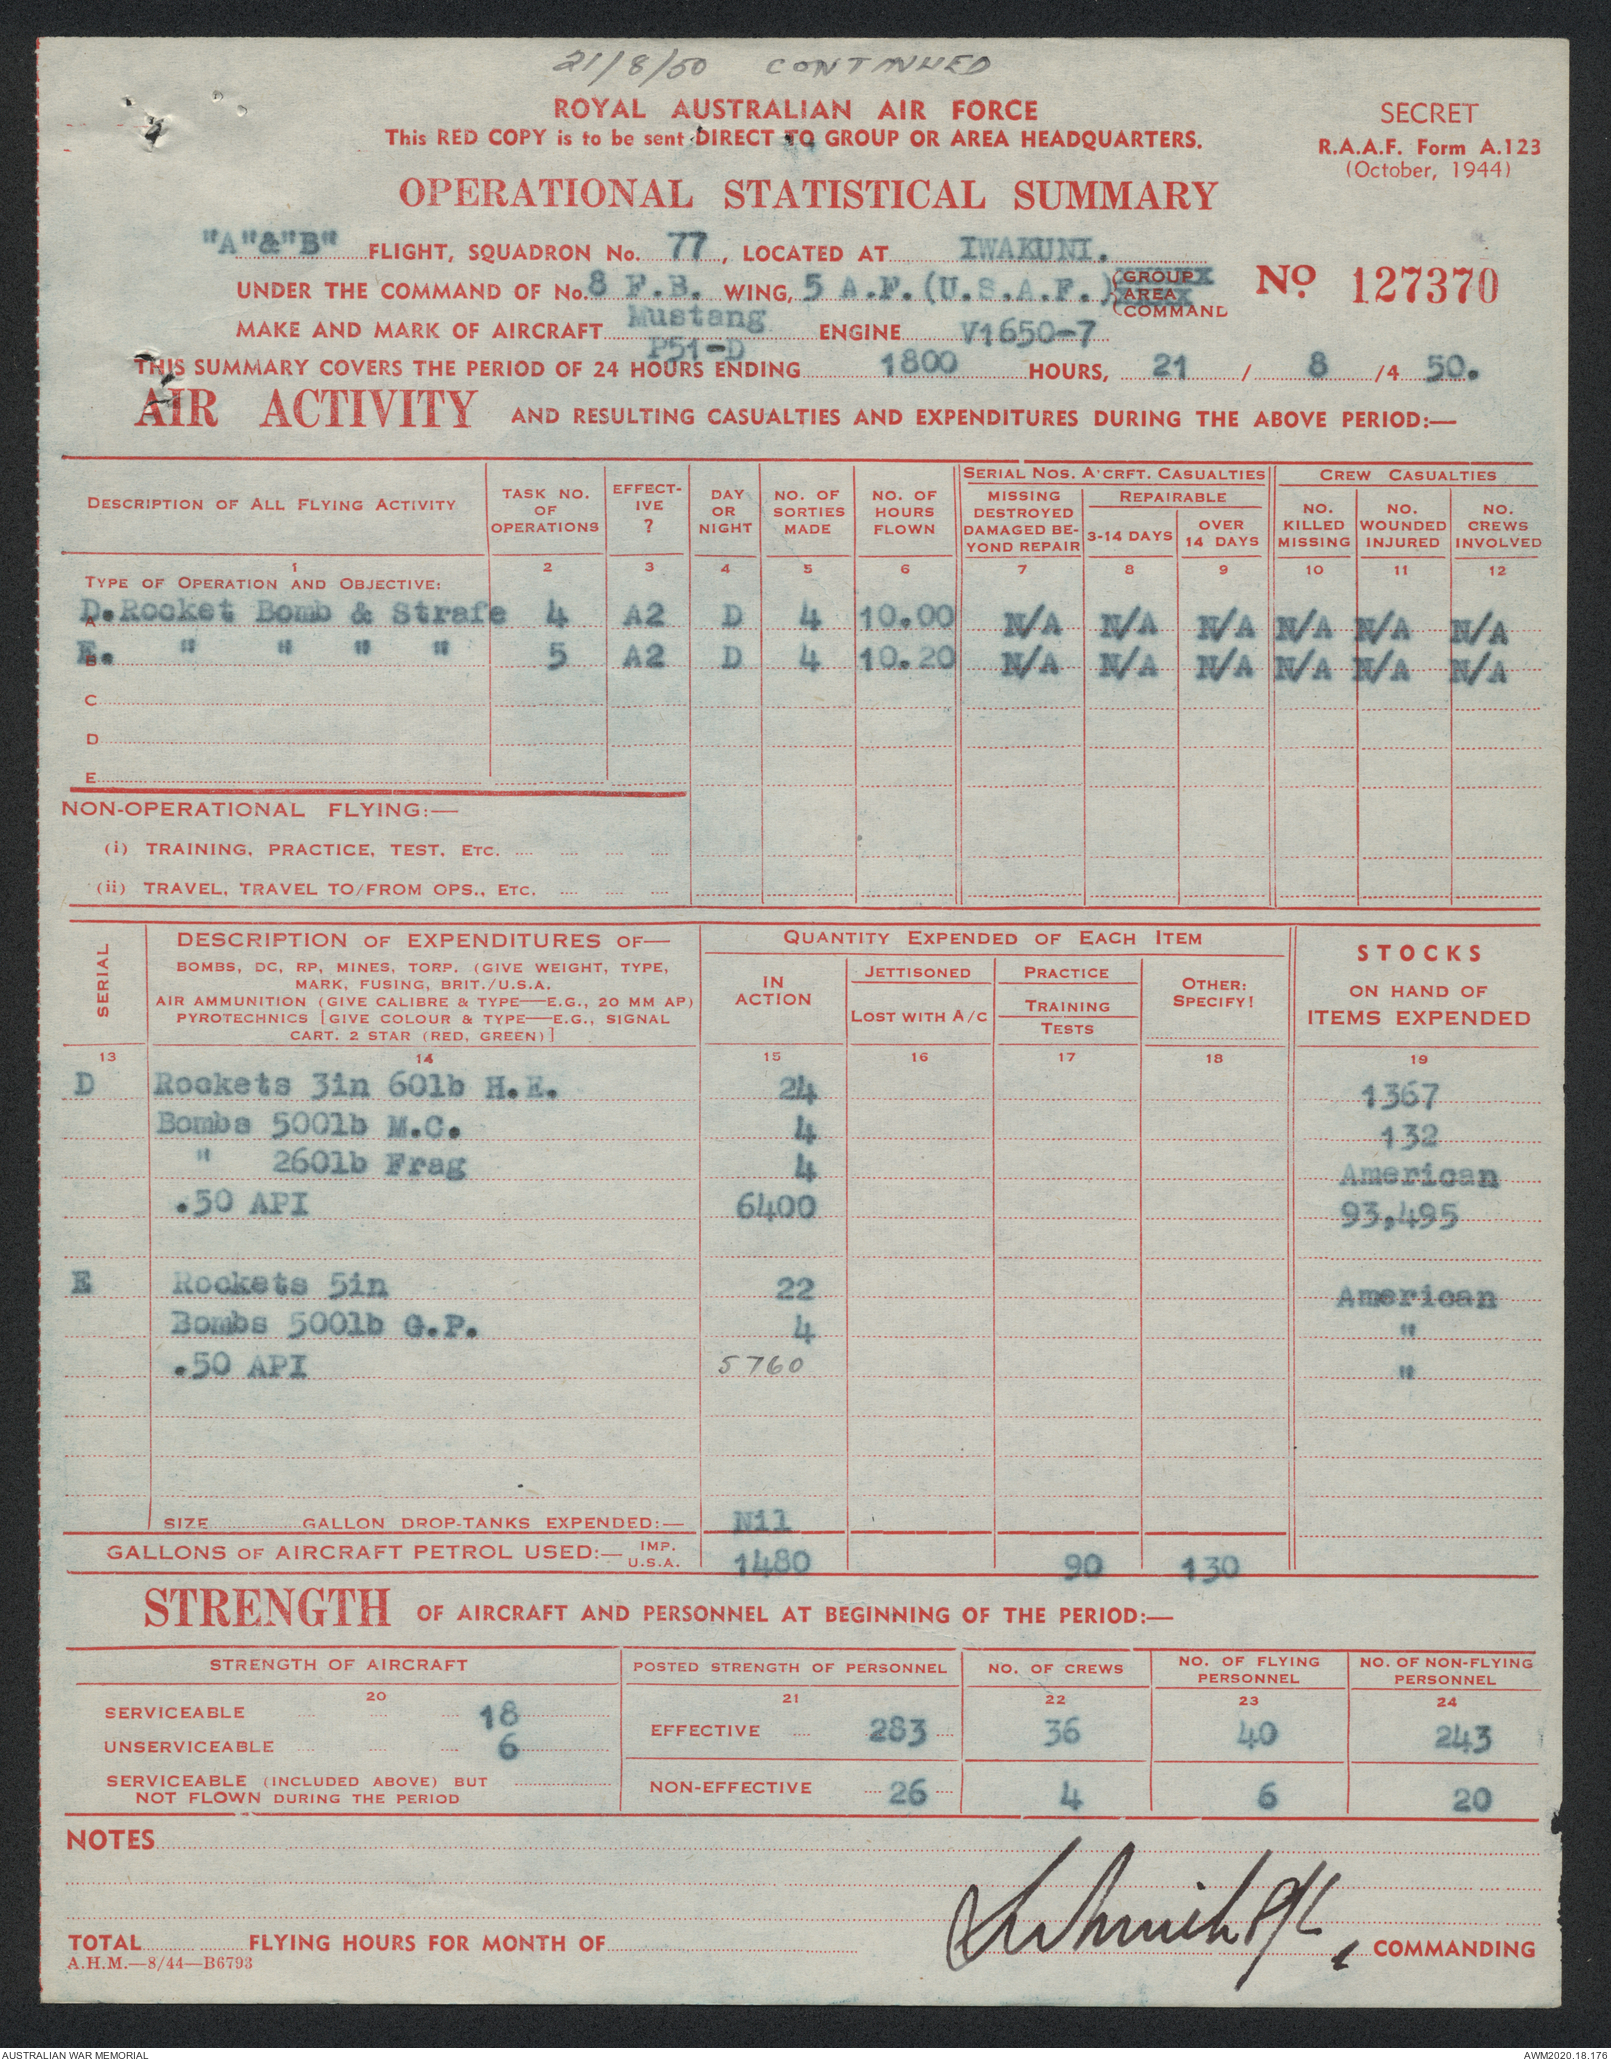 21/8/50 CONTINUED
ROYAL AUSTRALIAN AIR FORCE
This RED COPY is to be sent DIRECT TO GROUP OR AREA HEADQUARTERS.
SECRET
R.A.A.F. Form A.123
(October, 1944)
OPERATIONAL STATISTICAL SUMMARY
"A"&"B" FLIGHT, SQUADRON No. 77, LOCATED AT IWAKUNI.
UNDER THE COMMAND OF No. 8 F.B. WING, 5 A.F.(U.S.A.F.) GROUP AREA COMMAND
No. 127370
MAKE AND MARK OF AIRCRAFT Mustang P51-D ENGINE V1650-7
THIS SUMMARY COVERS THE PERIOD OF 24 HOURS ENDING 1800 HOURS, 21 / 8 /4 50.
AIR ACTIVITY AND RESULTING CASUALTIES AND EXPENDITURES DURING THE ABOVE PERIOD:—
SERIAL NOS. A'CRFT. CASUALTIES CREW CASUALTIES
DESCRIPTION OF ALL FLYING ACTIVITY TASK NO. OF OPERATIONS EFFECT-IVE ? DAY OR NIGHT NO. OF SORTIES MADE NO. OF HOURS FLOWN MISSING DESTROYED DAMAGED BE-YOND REPAIR REPAIRABLE 3-14 DAYS OVER 14 DAYS NO. KILLED MISSING NO. WOUNDED INJURED NO. CREWS INVOLVED
1 2 3 4 5 6 7 8 9 10 11 12
TYPE OF OPERATION AND OBJECTIVE:
A D.Rocket Bomb & Strafe 4 A2 D 4 10.00 N/A N/A N/A N/A N/A N/A
B E. " " " " 5 A2 D 4 10.20 N/A N/A N/A N/A N/A N/A
C
D
E
NON-OPERATIONAL FLYING:—
(i) TRAINING, PRACTICE, TEST, ETC.
(ii) TRAVEL, TRAVEL TO/FROM OPS., ETC.
SERIAL
DESCRIPTION OF EXPENDITURES OF—
BOMBS, DC, RP, MINES, TORP. (GIVE WEIGHT, TYPE,
MARK, FUSING, BRIT./U.S.A.
AIR AMMUNITION (GIVE CALIBRE & TYPE—E.G., 20 MM AP)
PYROTECHNICS [GIVE COLOUR & TYPE—E.G., SIGNAL
CART. 2 STAR (RED, GREEN)]
QUANTITY EXPENDED OF EACH ITEM
IN ACTION
JETTISONED
LOST WITH A/C
PRACTICE
TRAINING
TESTS
OTHER:
SPECIFY!
STOCKS
ON HAND OF
ITEMS EXPENDED
13 14 15 16 17 18 19
D Rockets 3in 60lb H.E. 24 1367
Bombs 500lb M.C. 4 132
" 260lb Frag 4 American
.50 API 6400 93,495
E Rockets 5in 22 American
Bombs 500lb G.P. 4 "
.50 API 5760 "
SIZE GALLON DROP-TANKS EXPENDED:— Nil
GALLONS OF AIRCRAFT PETROL USED:— IMP. U.S.A. 1480 90 130
STRENGTH OF AIRCRAFT AND PERSONNEL AT BEGINNING OF THE PERIOD:—
STRENGTH OF AIRCRAFT POSTED STRENGTH OF PERSONNEL NO. OF CREWS NO. OF FLYING PERSONNEL NO. OF NON-FLYING PERSONNEL
20 21 22 23 24
SERVICEABLE 18 EFFECTIVE 283 36 40 243
UNSERVICEABLE 6
SERVICEABLE (INCLUDED ABOVE) BUT
NOT FLOWN DURING THE PERIOD
NON-EFFECTIVE 26 4 6 20
NOTES
TOTAL FLYING HOURS FOR MONTH OF , COMMANDING
A.H.M.—8/44—B6793
AUSTRALIAN WAR MEMORIAL AWM2020.18.176